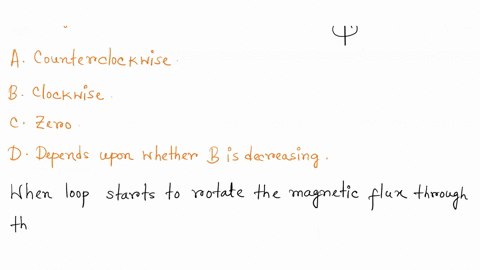 A. Counterclockwise.
B. Clockwise.
C. Zero.
D. Depends upon whether B is decreasing.
When loop starts to rotate the magnetic flux through
th